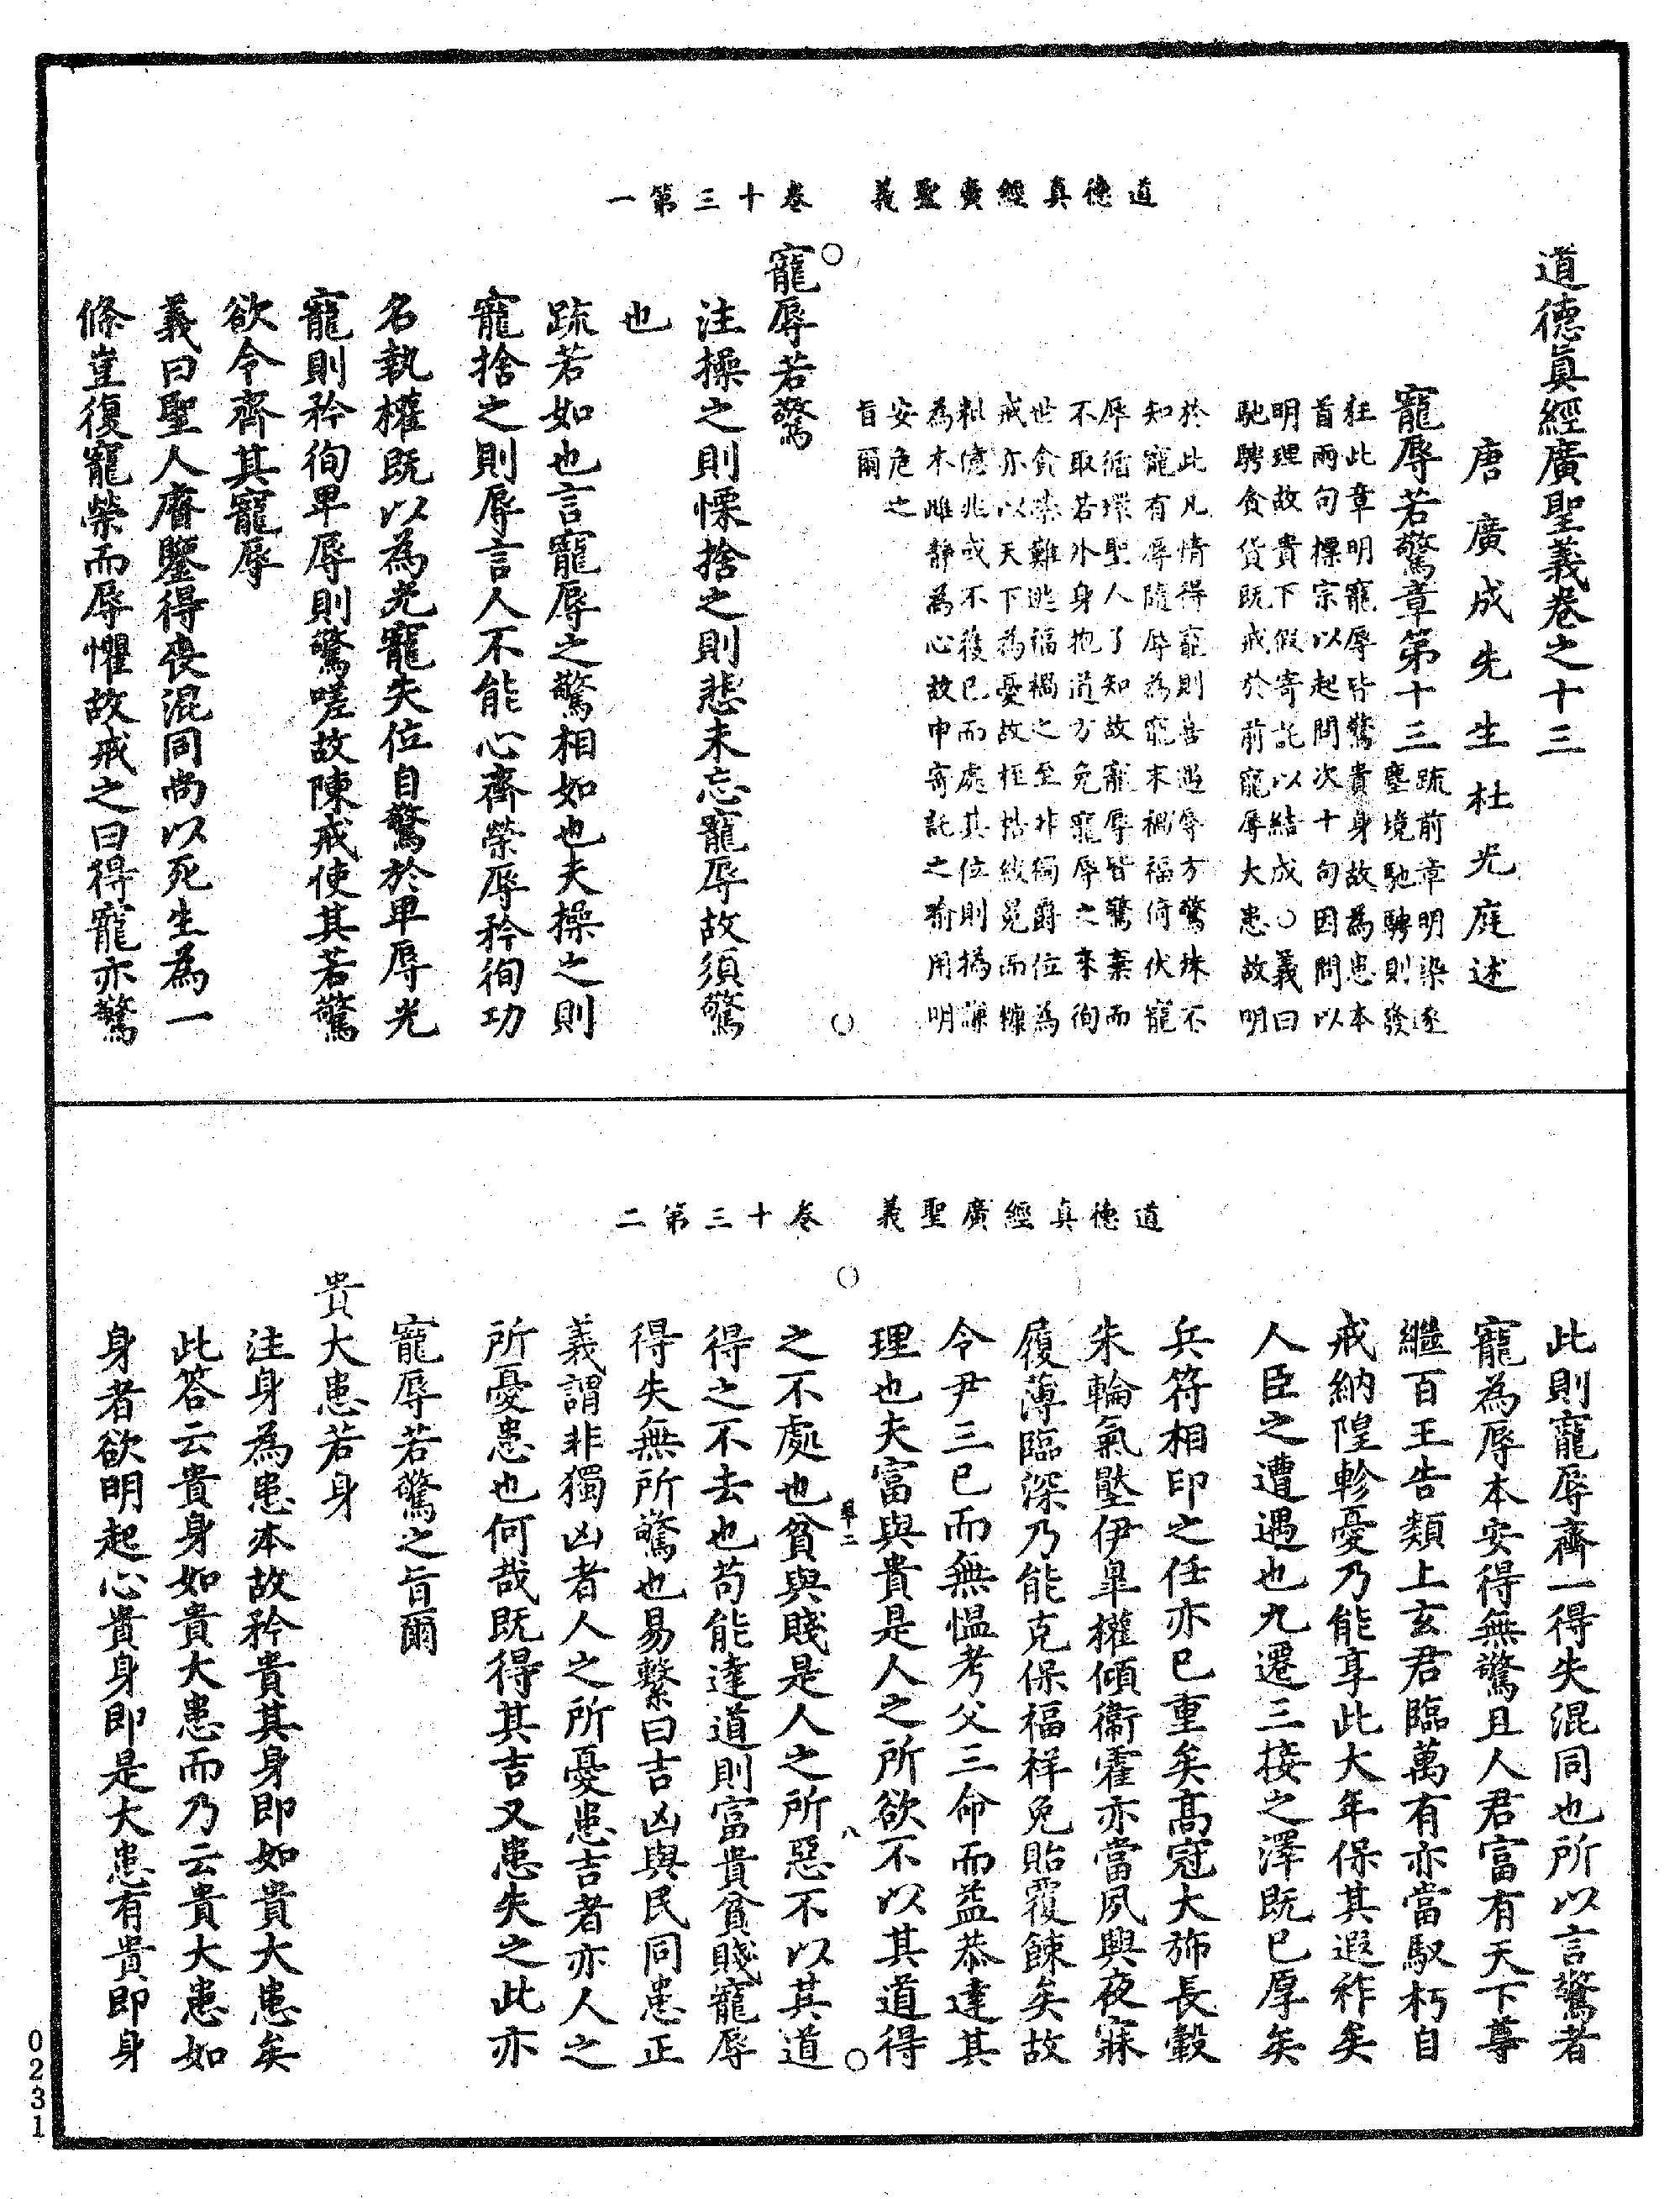 道德真經廣聖義　卷十三第一
道德真經廣聖義卷之十三
唐廣成先生杜光庭述
寵辱若驚章第十三
疏前章明染逐
塵境馳騁則發
狂此章明寵辱皆驚貴身故為患本
首兩句標宗以起問次十句因問以
明理故貴下假寄託以結成〇義曰
馳騁貪貨既戒於前寵辱大患故明
於此凡情得寵則喜遇辱方驚殊不
知寵有辱隨辱為寵末禍福倚伏寵
辱循環聖人了知故寵辱皆驚棄而
不取若外身抱道方免寵辱之來徇
世貪榮難逃福禍之至非獨爵位為
戒亦以天下為憂故桎梏紱冕而糠
粃億兆或不獲已而處其位則撝謙
為本雌静為心故申寄託之喻用明
安危之
旨爾
寵辱若驚
注操之則慄捨之則悲未忘寵辱故須驚
也
疏若如也言寵辱之驚相如也夫操之則
寵捨之則辱言人不能心齊榮辱矜徇功
名執權既以為光寵失位自驚於卑辱光
寵則矜徇卑辱則驚嗟故陳戒使其若驚
欲令齊其寵辱
義曰聖人膺鑒得喪混同尚以死生為一
條豈復寵榮而辱懼故戒之曰得寵亦驚
道德真經廣聖義　卷十三第二
此則寵辱齊一得失混同也所以言驚者
寵為辱本安得無驚且人君富有天下尊
繼百王告類上玄君臨萬有亦當馭朽自
戒納隍軫憂乃能享此大年保其遐祚矣
人臣之遭遇也九遷三接之澤既已厚矣
兵符相印之任亦已重矣高冠大旆長轂
朱輪氣壓伊皐權傾衛霍亦當夙興夜寐
履薄臨深乃能克保福祥免貽覆餗矣故
令尹三已而無愠考父三命而益恭達其
理也夫富與貴是人之所欲不以其道得
之不處也貧與賤是人之所惡不以其道
得之不去也苟能達道則富貴貧賤寵辱
得失無所驚也易繫曰吉凶與民同患正
義謂非獨凶者人之所憂患吉者亦人之
所憂患也何哉既得其吉又患失之此亦
寵辱若驚之旨爾
貴大患若身
注身為患本故矜貴其身即如貴大患矣
此答云貴身如貴大患而乃云貴大患如
身者欲明起心貴身即是大患有貴即身
0231